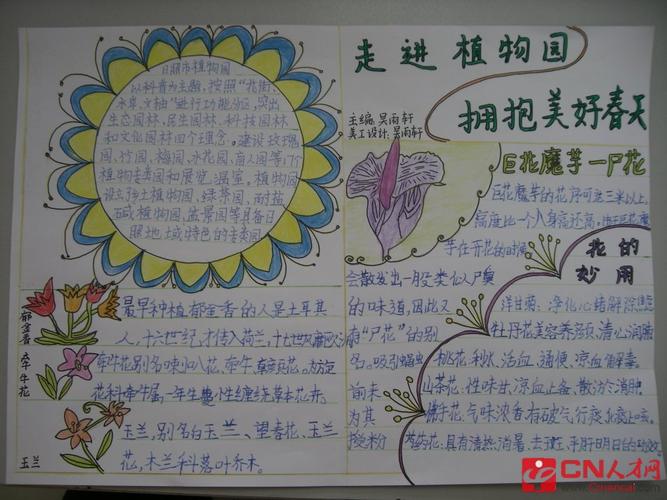 日照市植物园
以科普为主题，按照"北街、
水阜、文抽"进行功能分区，突出
生态园林、民生园林、科技园林
和文化园林四个理念。建设玫瑰
园、竹园、梅园、水花园、盲人园等17个
植物专类园和展览温室。植物园
设立乡土植物园、绿荫园、耐盐
碱植物园、盆景园等具备日
照地域特色的专类园
走进植物园
拥抱美好春天
主编：吴雨轩
美工设计：吴雨轩
巨花魔芋—尸花
巨花魔芋的花序可达三米以上，
高度比一个人身高还高，
芋在开花的时候，
会散发出一股类似人尸臭
的味道，因此又
有"尸花"的别
名。吸引蝇虫
前来
为其
授粉
花的
妙用
洋甘菊：净化心绪解除
牡丹花美容养颜，清心润肺
桃花：利水、活血、通便、凉血解毒。
山茶花，性味甘，凉血止备，散淤消肿
佛手花，气味浓香有破气行痰
芍药花：具有清热、消暑、去、平肝明目的功效
郁金香
最早种植郁金香的人是土耳其
人，十六世纪，才传入荷兰，十七世纪
牵牛花
牵牛花别名喇叭花、牵牛、为旋
花科牵牛属，一年生蔓性缠绕草本花卉。
玉兰
玉兰，别名白玉兰、望春花、玉兰
花，木兰科落叶乔木。
CN人才网